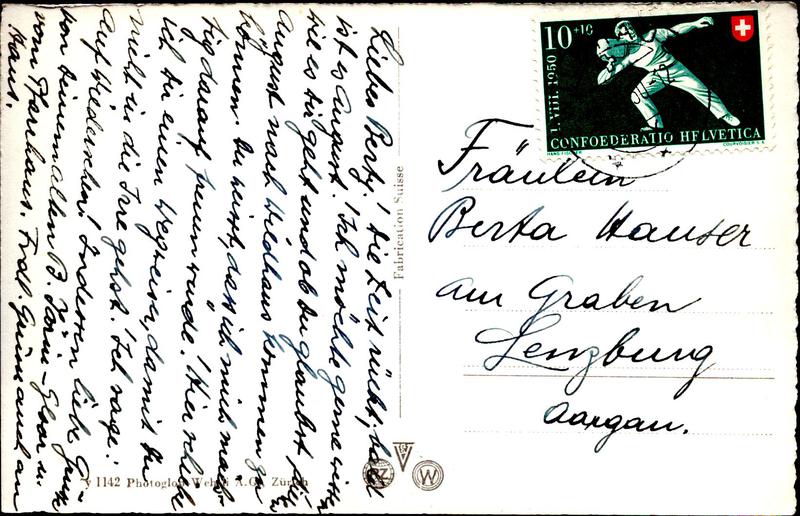 Liebes Berty! Die Zeit rückt, bald
ist es August. Ich möchte gerne wissen
wie es Dir geht und ob Du glaubst, für
August nach Wildhaus kommen zu
können. Du weisst, dass ich mich mäch-
tig darauf freuen würde. Hier schicke
ich Dir einen Wegweiser, damit Du
nicht in die Irre gehst. Ich sage:
Auf Wiedersehen! Indessen liebe Grüsse
von Deinem alten B. -Gloor u.
vom Pfarrhaus. Frdl. Gruss auch an
Hans.
Fabrication Suisse
1142 Photoglob-Wehrli A.G., Zürich
PZ
W
10+10
1. VIII. 1950
CONFOEDERATIO HELVETICA
HANS FISCHER
COURVOISIER S.A.
Fräulein
Berta Hauser
am Graben
Lenzburg
Aargau.